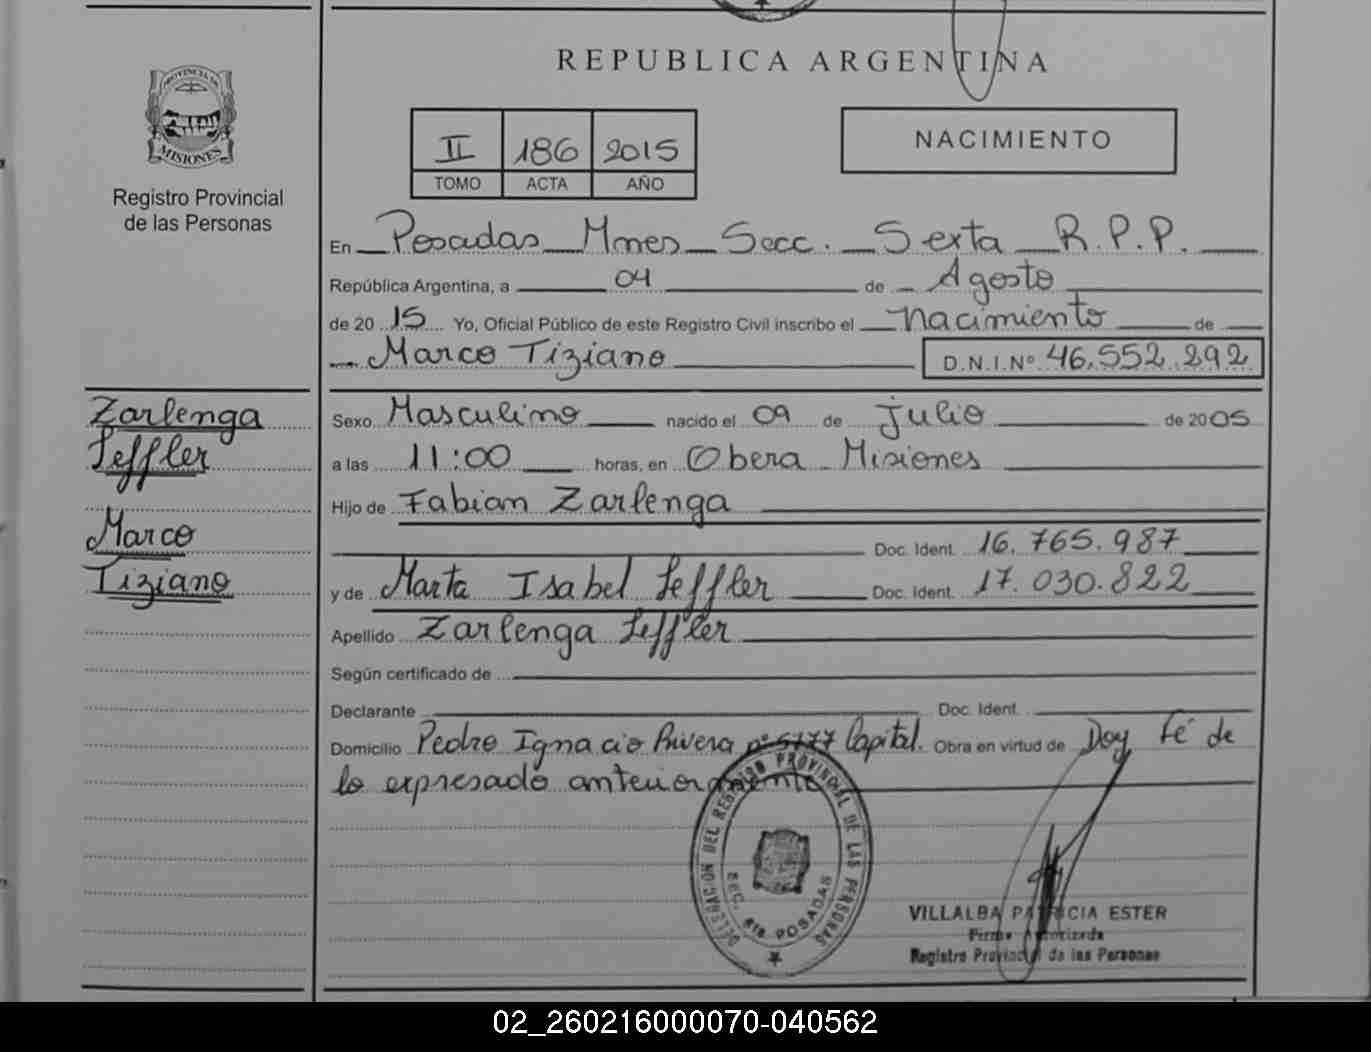 REPUBLICA ARGENTINA
PROVINCIA DE
MISIONES
Registro Provincial
de las Personas
II 186 2015
TOMO ACTA AÑO
NACIMIENTO
En Posadas Mnes Secc. Sexta R.P.P.
República Argentina, a 04 de Agosto
de 20 15 Yo, Oficial Público de este Registro Civil inscribo el Nacimiento de
Marco Tiziano D.N.I.Nº 46.552.292
Zarlenga
Leffler
Marco
Tiziano
Sexo Masculino nacido el 09 de Julio de 2005
a las 11:00 horas, en Obera Misiones
Hijo de Fabian Zarlenga
Doc. Ident. 16.765.987
y de Marta Isabel Leffler Doc. Ident. 17.030.822
Apellido Zarlenga Leffler
Según certificado de
Declarante Doc. Ident.
Domicilio Pedro Ignacio Rivera nº 5777 Capital. Obra en virtud de Doy Fé de
lo expresado anteriormente
DELEGACION DEL REGISTRO PROVINCIAL DE LAS PERSONAS
SEC. 6ta POSADAS
VILLALBA PATRICIA ESTER
Firma Autorizada
Registro Provincial de las Personas
02_260216000070-040562